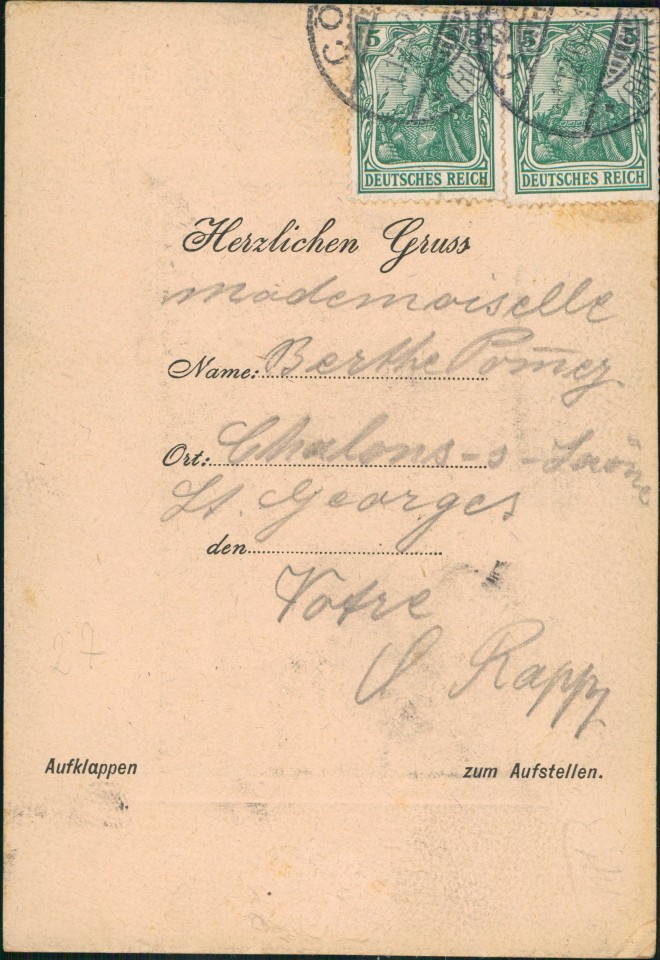 5 5 5 5
DEUTSCHES REICH DEUTSCHES REICH
Herzlichen Gruss
Mademoiselle
Name: Berthe
Ort: Chalons-s-Saône
St. Georges
den
Votre
Rappy
27
Aufklappen zum Aufstellen.